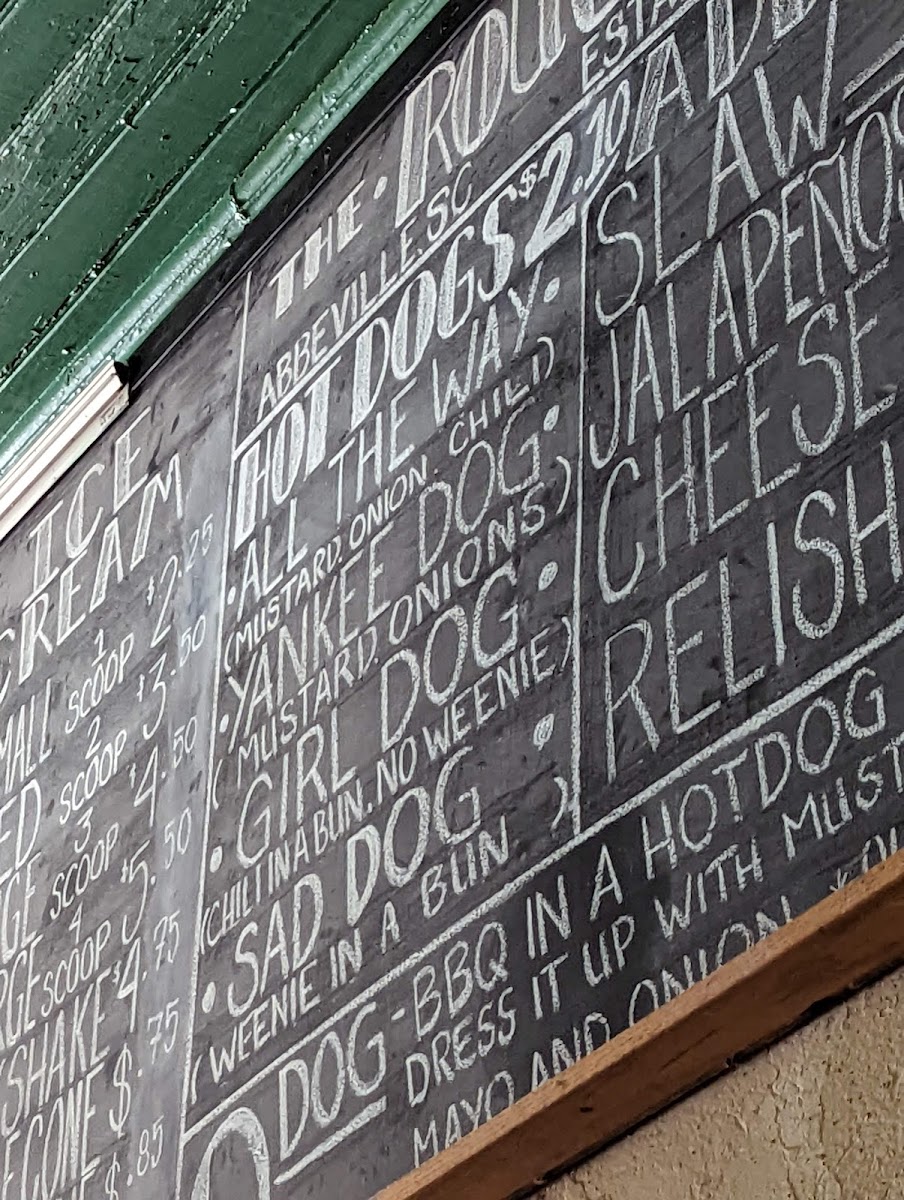 THE · ROU
ABBEVILLE, SC
ESTA
HOT DOGS $2.10
· ALL THE WAY ·
(MUSTARD, ONION, CHILI)
· YANKEE DOG ·
(MUSTARD, ONIONS)
· GIRL DOG ·
(CHILI IN A BUN, NO WEENIE)
· SAD DOG ·
(WEENIE IN A BUN)
ADD
SLAW
JALAPEÑOS
CHEESE
RELISH
ICE
CREAM
MALL 1 SCOOP $2.25
ED 2 SCOOP $3.50
GE 3 SCOOP $4.50
RGE 4 SCOOP $5.50
SHAKE $4.75
CONE $.75
$.85
DOG - BBQ IN A HOTDOG
DRESS IT UP WITH MUST
MAYO AND ONION